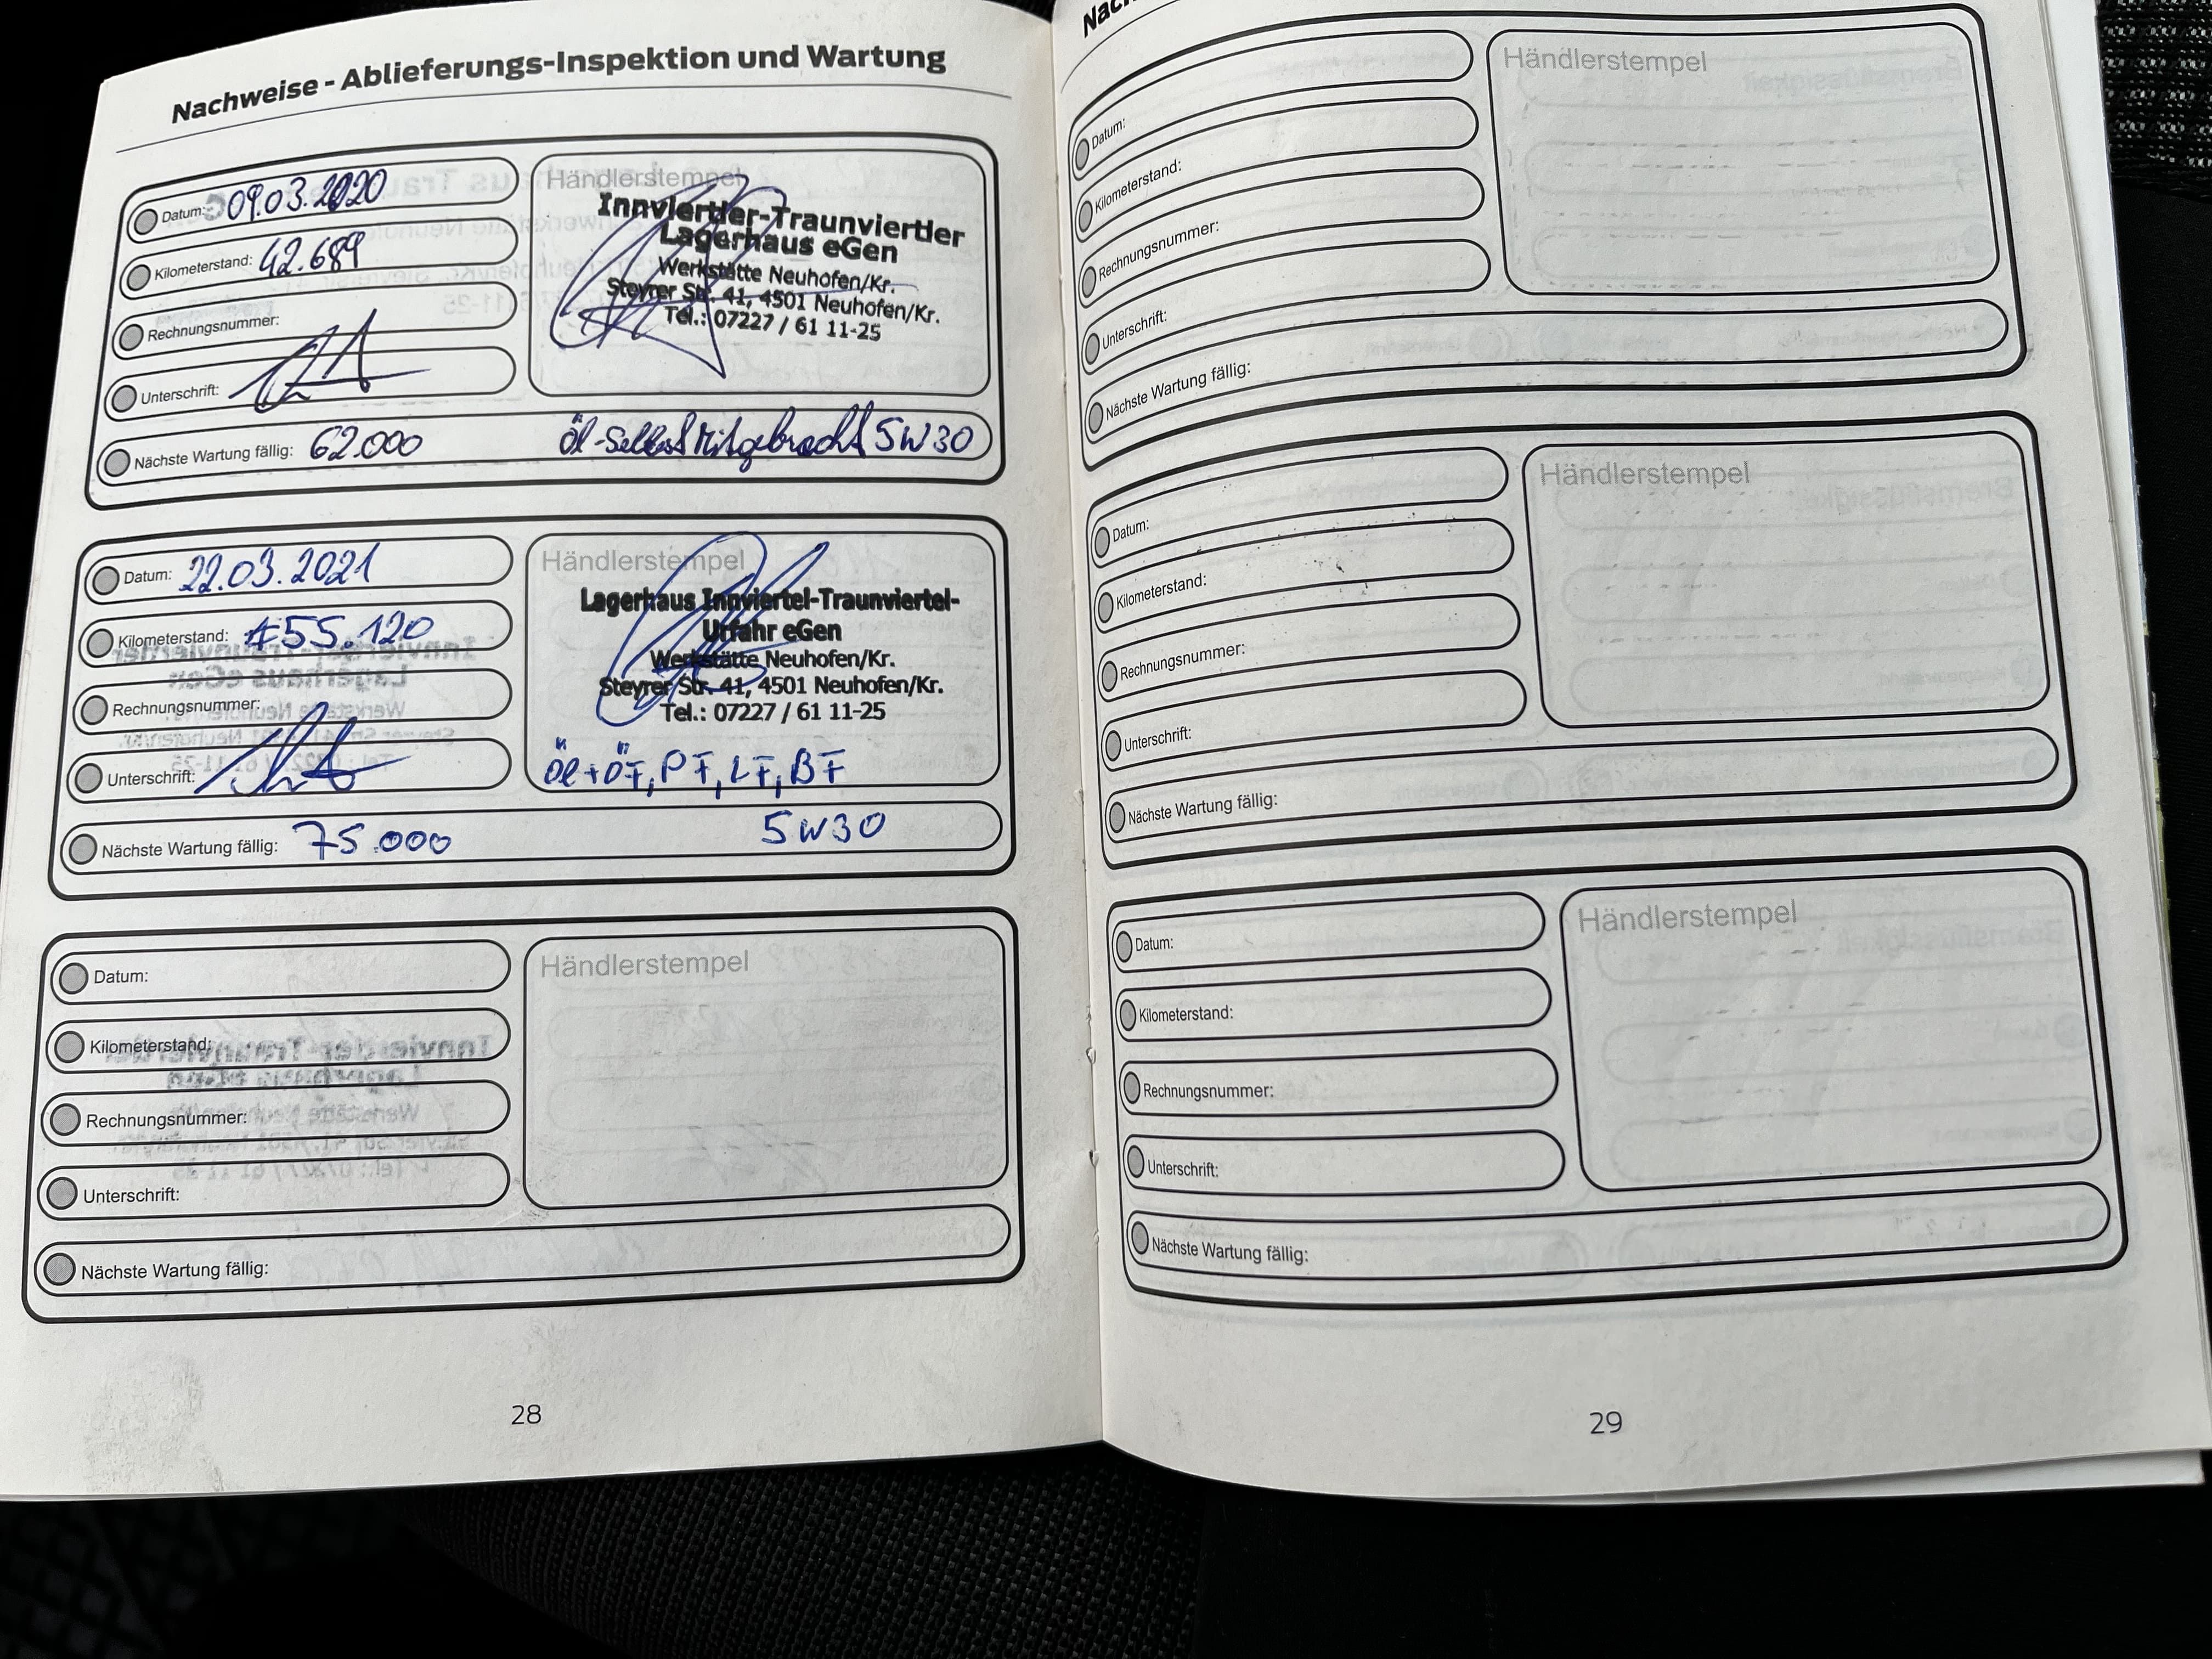 Nachweise - Ablieferungs-Inspektion und Wartung
Datum: 09.03.2020
Kilometerstand: 42.689
Rechnungsnummer:
Unterschrift:
Händlerstempel
Innviertler-Traunviertler
Lagerhaus eGen
Werkstätte Neuhofen/Kr.
Steyrer Str. 41, 4501 Neuhofen/Kr.
Tel.: 07227 / 61 11-25
Nächste Wartung fällig: 62.000 Öl-Selbst Mitgebracht 5W30
Datum: 22.03.2021
Kilometerstand: 55.120
Rechnungsnummer:
Unterschrift:
Händlerstempel
Lagerhaus Innviertel-Traunviertel-
Urfahr eGen
Werkstätte Neuhofen/Kr.
Steyrer Str. 41, 4501 Neuhofen/Kr.
Tel.: 07227 / 61 11-25
Öl+ÖF, PF, LF, BF
Nächste Wartung fällig: 75.000 5W30
Datum:
Kilometerstand:
Rechnungsnummer:
Unterschrift:
Händlerstempel
Nächste Wartung fällig:
28
Datum:
Kilometerstand:
Rechnungsnummer:
Unterschrift:
Händlerstempel
Nächste Wartung fällig:
Datum:
Kilometerstand:
Rechnungsnummer:
Unterschrift:
Händlerstempel
Nächste Wartung fällig:
Datum:
Kilometerstand:
Rechnungsnummer:
Unterschrift:
Händlerstempel
Nächste Wartung fällig:
29